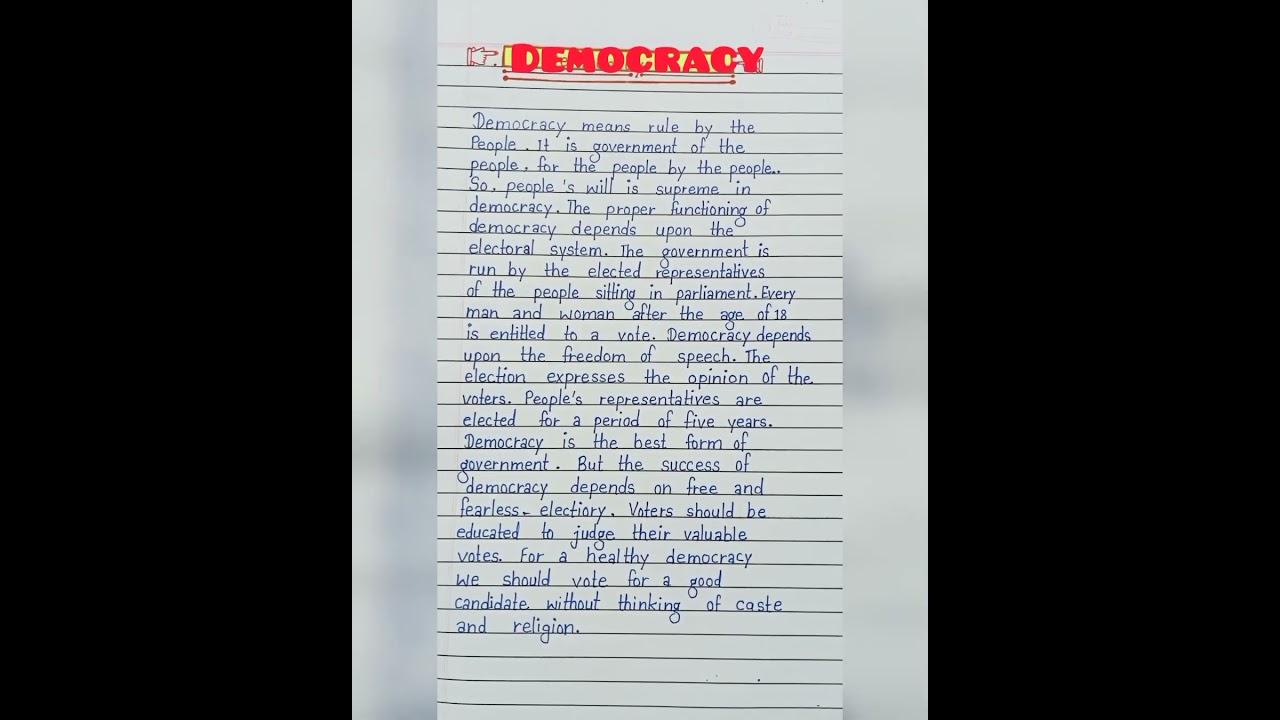 DEMOCRACY
Democracy means rule by the
People. It is government of the
people, for the people by the people..
So, people's will is supreme in
democracy. The proper functioning of
democracy depends upon the
electoral system. The government is
run by the elected representatives
of the people sitting in parliament. Every
man and woman after the age of 18
is entitled to a vote. Democracy depends
upon the freedom of speech. The
election expresses the opinion of the
voters. People's representatives are
elected for a period of five years.
Democracy is the best form of
government. But the success of
democracy depends on free and
fearless- electiory. Voters should be
educated to judge their valuable
votes. For a healthy democracy
we should vote for a good
candidate without thinking of caste
and religion.